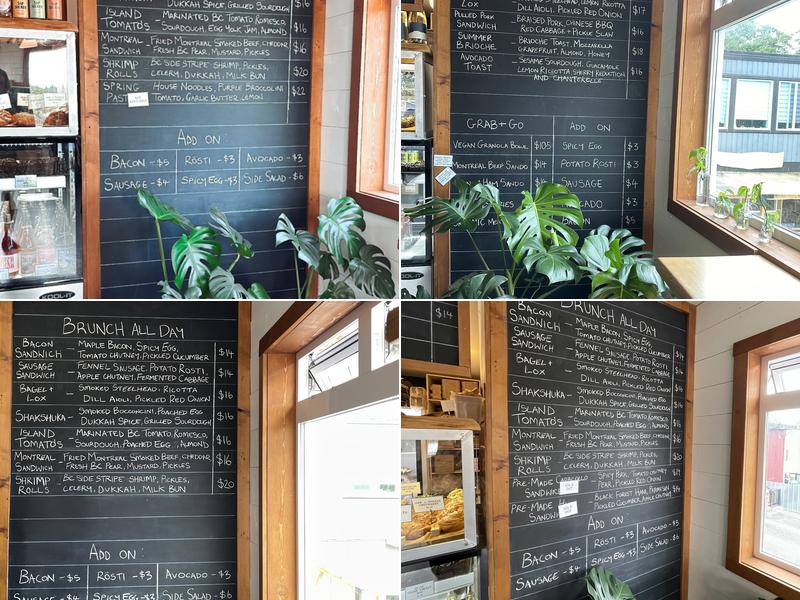 DUKKAH SPICE, GRILLED SOURDOUGH $16
ISLAND TOMATOS - MARINATED BC TOMATO ROMESCO, $16
SOURDOUGH, EGG YOLK JAM, ALMOND
MONTREAL SANDWICH - FRIED MONTREAL SMOKED BEEF, CHEDDR, $16
FRESH BC PEAR, MUSTARD, PICKLES
SHRIMP ROLLS - BC SIDE STRIPE SHRIMP, PICKLES, $20
CELERY, DUKKAH, MILK BUN
SPRING PASTA HOUSE NOODLES, PURPLE BROCCOLINI $22
TOMATO, GARLIC BUTTER LEMON
ADD ON
BACON - $5 RÖSTI - $3 AVOCADO - $3
SAUSAGE - $4 SPICY EGG - $3 SIDE SALAD - $6
LOX LEMON RICOTTA $17
DILL AIOLI, PICKLED RED ONION
PULLED PORK SANDWICH - BRAISED PORK, CHINESE BBQ $16
RED CABBAGE + PICKLE SLAW
SUMMER BRIOCHE - BRIOCHE TOAST, MOZZARELLA $18
GRAPEFRUIT, ALMOND, HONEY
AVOCADO TOAST - SESAME SOURDOUGH, GUACAMOLE $16
LEMON RICIOTTA SHERRY REDUCTION
AND CHANTERELLE
GRAB + GO ADD ON
VEGAN GRANOLA BOWL $105 SPICY EGG $3
MONTREAL BEEF SANDO $14 POTATO RÖSTI $3
HAM SANDO SAUSAGE $4
AVOCADO $3
BACON $5
BRUNCH ALL DAY
BACON SANDWICH - MAPLE BACON, SPICY EGG, $14
TOMATO CHUTNEY, PICKLED CUCUMBER
SAUSAGE SANDWICH - FENNEL SAUSAGE, POTATO RÖSTI, $14
APPLE CHUTNEY, FERMENTED CABBAGE
BAGEL + LOX - SMOKED STEELHEAD, RICOTTA $16
DILL AIOLI, PICKLED RED ONION
SHAKSHUKA - SMOKED BOCCONCINI, POACHED EGG $16
DUKKAH SPICE, GRILLED SOURDOUGH
ISLAND TOMATOS - MARINATED BC TOMATO ROMESCO, $16
SOURDOUGH, POACHED EGG, ALMOND
MONTREAL SANDWICH - FRIED MONTREAL SMOKED BEEF, CHEDDR, $16
FRESH BC PEAR, MUSTARD, PICKLES
SHRIMP ROLLS - BC SIDE STRIPE SHRIMP, PICKLES, $20
CELERY, DUKKAH, MILK BUN
ADD ON:
BACON - $5 RÖSTI - $3 AVOCADO - $3
SAUSAGE - $4 SPICY EGG - $3 SIDE SALAD - $6
$14
BRUNCH ALL DAY
BACON SANDWICH - MAPLE BACON, SPICY EGG, $14
TOMATO CHUTNEY, PICKLED CUCUMBER
SAUSAGE SANDWICH - FENNEL SAUSAGE, POTATO RÖSTI, $14
APPLE CHUTNEY, FERMENTED CABBAGE
BAGEL + LOX - SMOKED STEELHEAD, RICOTTA $16
DILL AIOLI, PICKLED RED ONION
SHAKSHUKA - SMOKED BOCCONCINI, POACHED EGG $16
DUKKAH SPICE, GRILLED SOURDOUGH
ISLAND TOMATOS - MARINATED BC TOMATO ROMESCO, $16
SOURDOUGH, POACHED EGG, ALMOND
MONTREAL SANDWICH - FRIED MONTREAL SMOKED BEEF, CHEDDR, $16
FRESH BC PEAR, MUSTARD, PICKLES
SHRIMP ROLLS - BC SIDE STRIPE SHRIMP, PICKLES, $20
CELERY, DUKKAH, MILK BUN
PRE-MADE - SPICY PORK, TOMATO CHUTNEY
PICKLED RED ONION
PRE-MADE - BLACK FOREST HAM, PARMESAN
PICKLED CUCUMBER, APPLE CHUTNEY
ADD ON:
BACON - $5 RÖSTI - $3 AVOCADO - $3
SAUSAGE - $4 SPICY EGG - $3 SIDE SALAD - $6